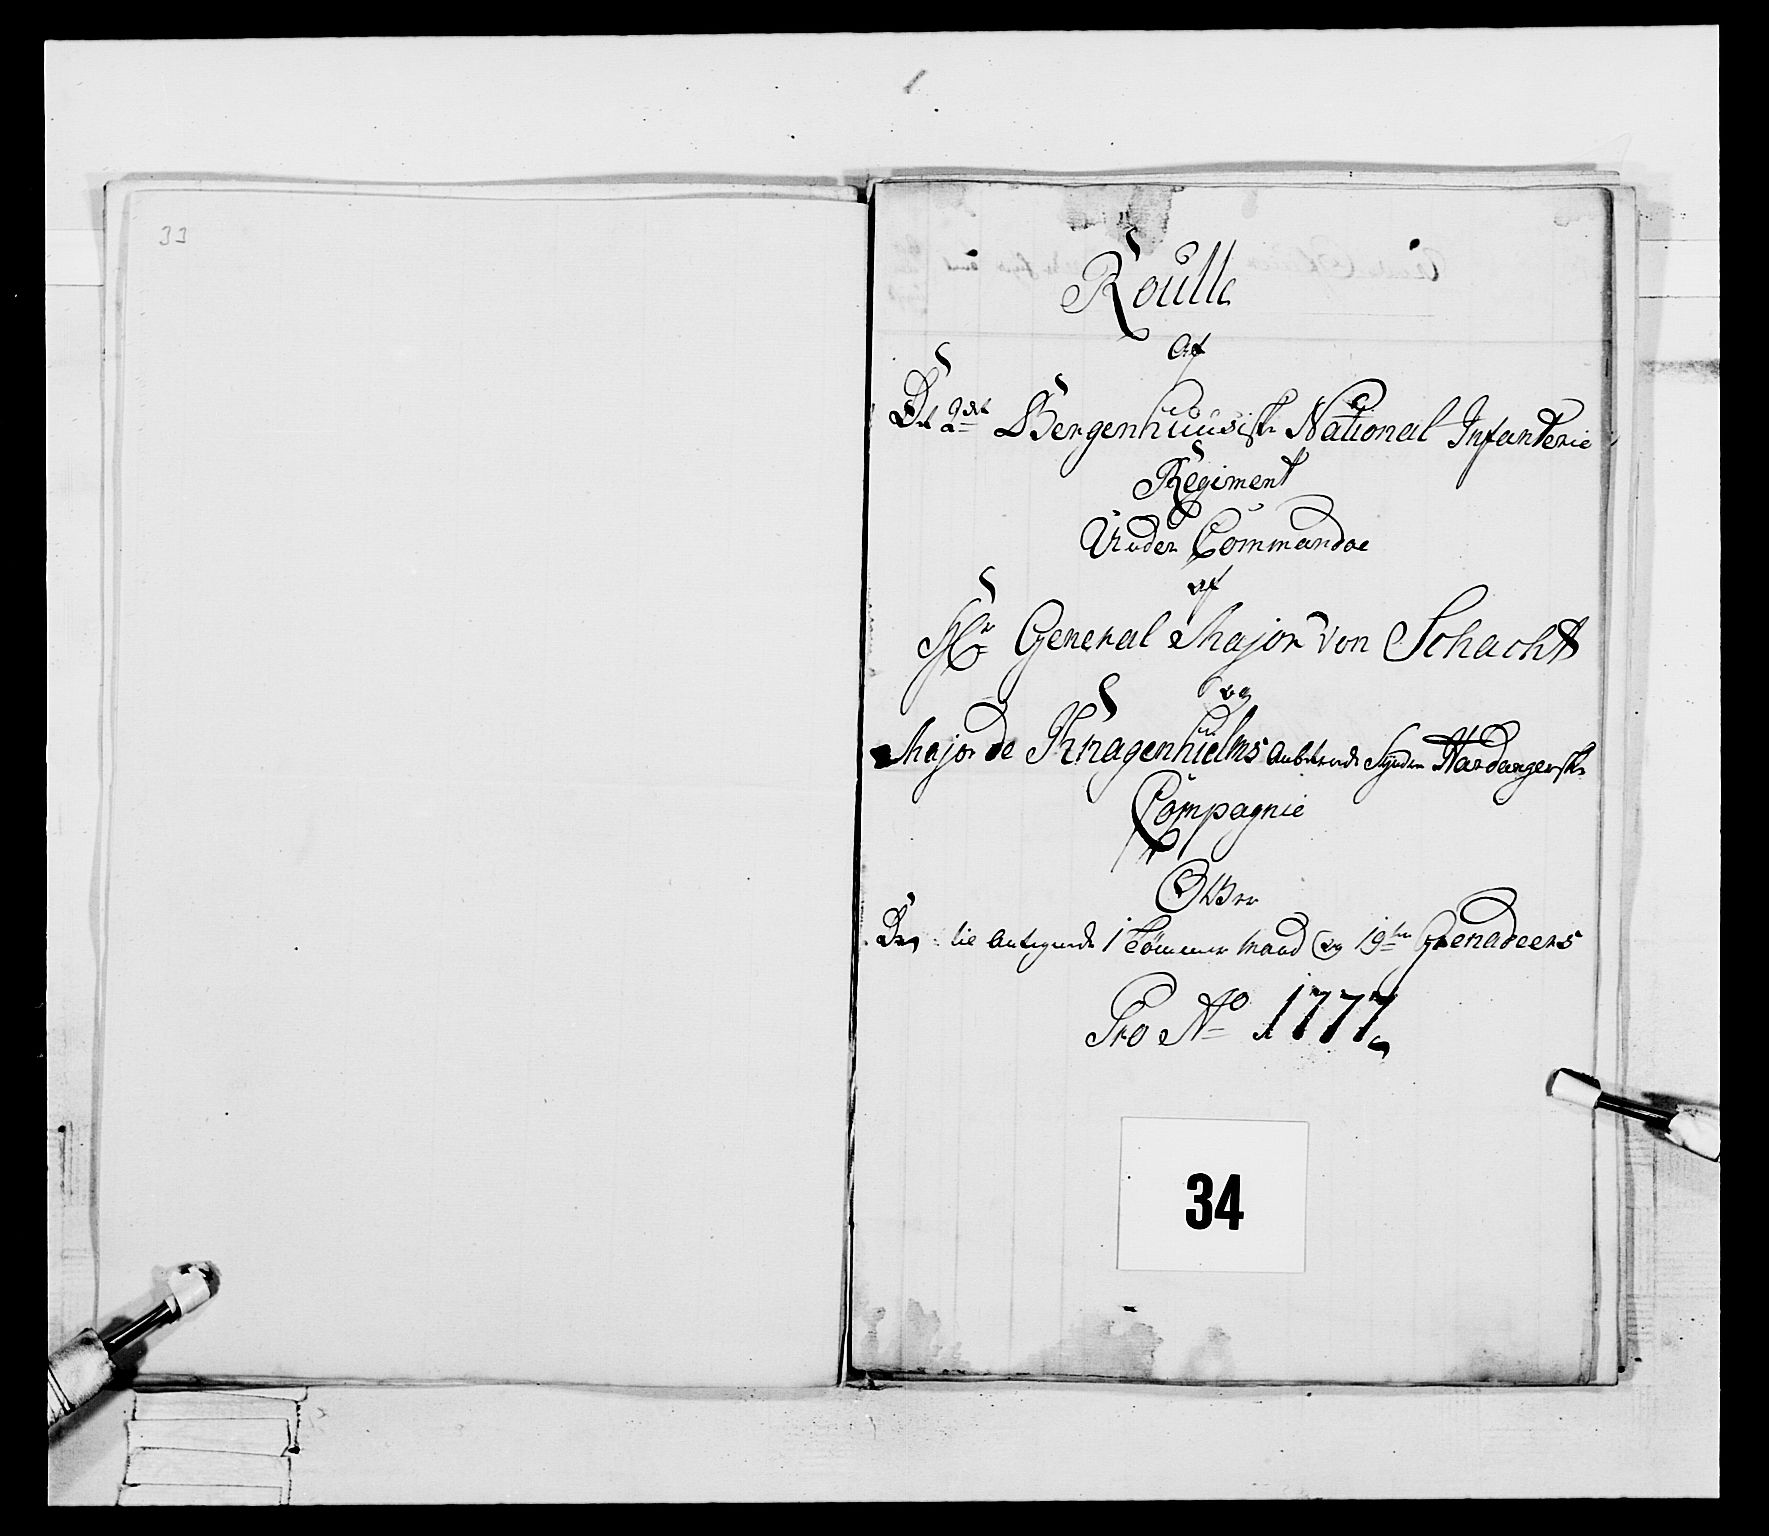 33
Roulle
af
Det 2det Bergenhuusiske National Infanterie
Regiment
Under Commandoe
af
Hr General Major von Schacht
og
Major de Knagenhielms anbetroede Syndre Hardangerske
Compagnie
Over
De 1 Tömmer Mand og 19ten Grenadeers
Pro Ao 1777
34